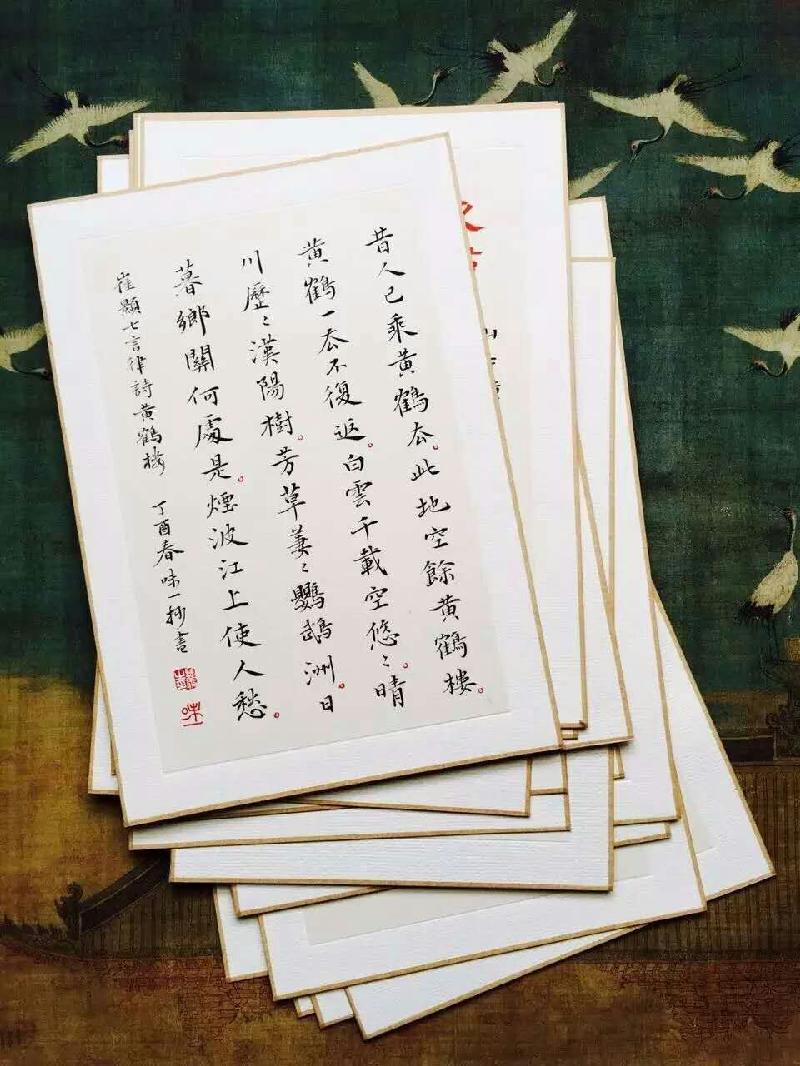 昔人已乘黄鶴去此地空餘黄鶴樓
黄鶴一去不復返白雲千載空悠〻晴
川歷〻漢陽樹芳草萋〻鸚鵡洲日
暮鄉關何處是煙波江上使人愁
崔顥七言律詩黄鶴樓 丁酉春味一抄書
味一